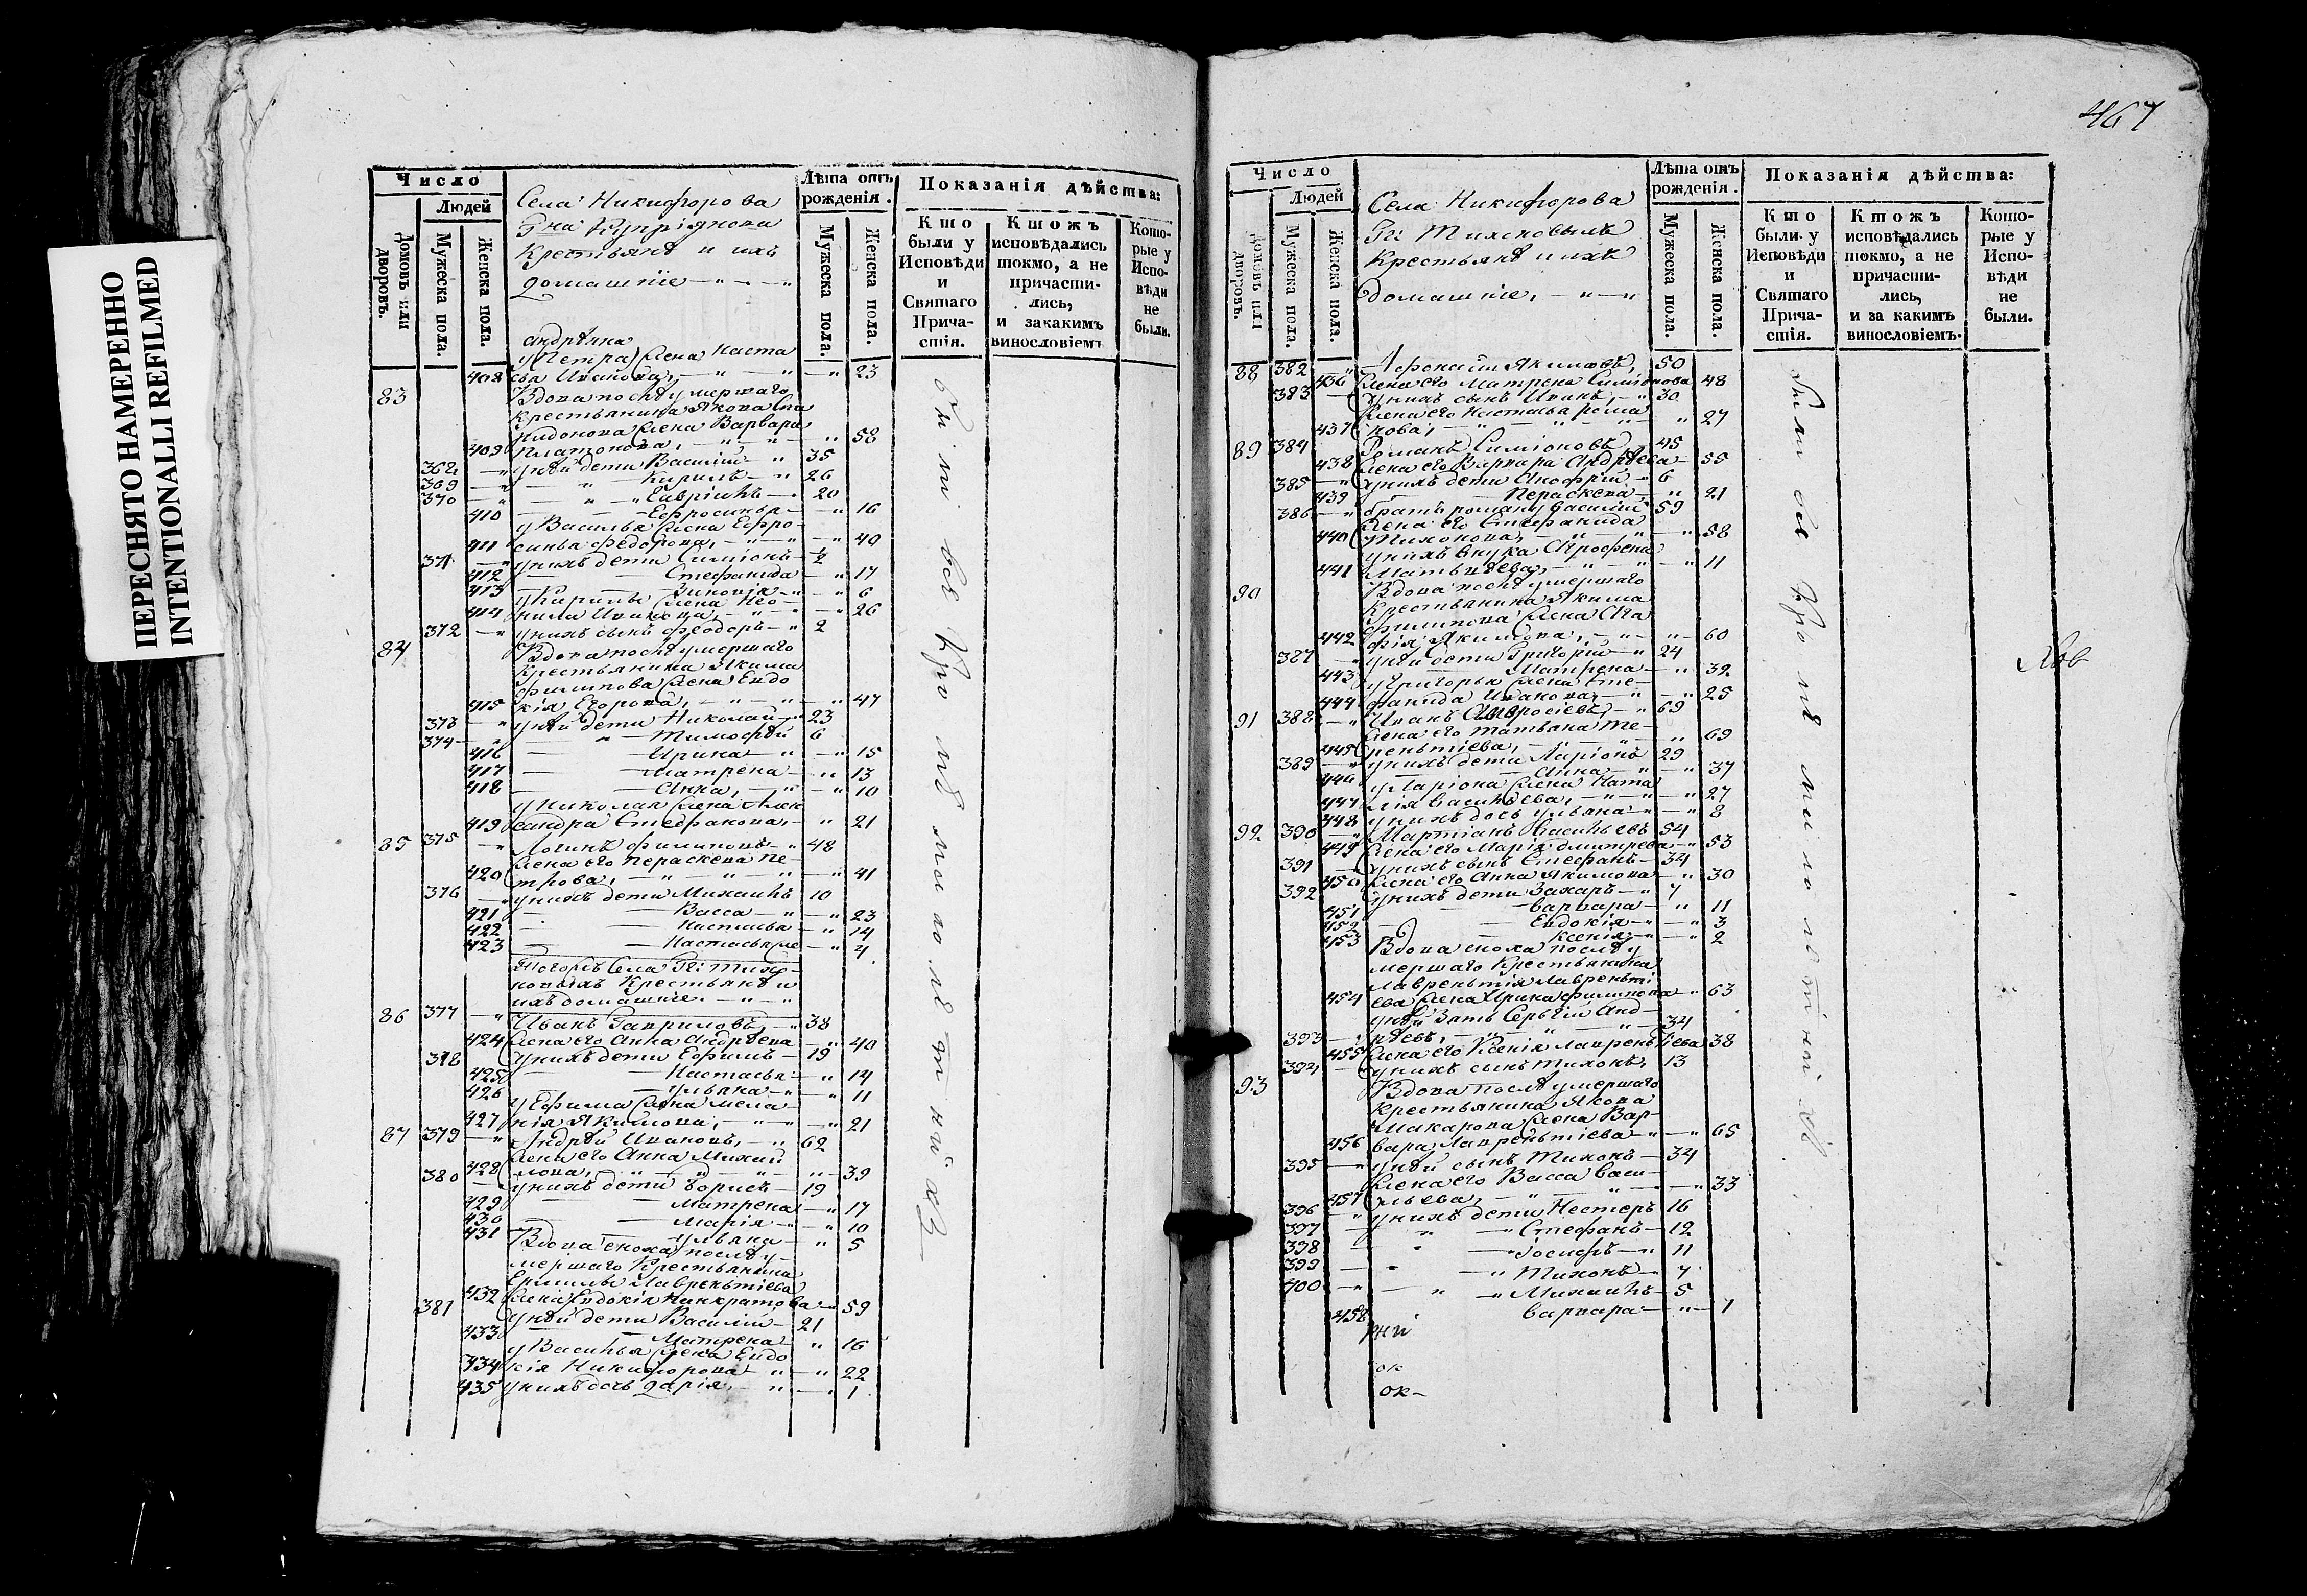 ПЕРЕСНЯТО НАМЕРЕННО
INTENTIONALLI REFILMED
Число
Людей
Домовъ или дворовъ.
Мужеска пола.
Женска пола.
Села Никифорова
Гна Купріянова
Крестьянѣ и ихъ
домашніе
Лѣта отъ рожденія.
Мужеска пола.
Женска пола.
Показанія дѣйства:
Кто были у Исповѣди и Святаго Причастія.
Ктожъ исповѣдались токмо, а не причастились, и за какимъ винословіемъ
Которые у Исповѣди не были.
Андрѣяна
у Петра жена Наста
408 сья Иванова, 23
83 Вдова послѣ умершаго
крестьянина Якова Спи
ридонова жена Варвара
409 Платонова, 58
368 у ней дети Василій 35
369 Кирилъ 26
370 Гавріилъ 20
410 Ефросинья 16
у Василья жена Ефро
411 синья Федорова, 40
371 у нихъ дети Симіонъ 1/2
412 Стефанида 17
413 Зиновія 6
у Кирилы жена Нео
414 нила Иванова, 26
372 у нихъ сынъ Феодоръ 2
84 Вдова послѣ умершаго
Крестьянина Якима
Филипова жена Евдо
415 кія Егорова, 47
373 у ней дети Николай 23
374 Тимофѣй 6
416 Ирина 15
417 Матрена 13
418 Анна, 10
у Николая жена Алек
419 сандра Стефанова, 21
85 375 Логинъ Филиповъ 48
жена его Пераскева Пе
420 трова, 41
376 у нихъ дети Михаилъ 10
421 Васса 23
422 Настасья 14
423 Настасья же 4
Тогожъ Села Гг: Тихо
новыхъ Крестьянѣ и
ихъ домашніе.
86 377 Иванъ Гавриловъ, 38
424 жена его Анна Андрѣева 40
378 у нихъ дети Ефимъ 19
425 Настасья 14
426 Ульяна 11
у Ефима жена Мела
427 нія Якимова, 21
87 379 Андрѣй Ивановъ, 62
жена его Анна Михай
428 лова, 39
380 у нихъ дети Борисъ 19
429 Матрена 17
430 Марія 10
431 Ульяна 5
Вдова сноха послѣ у
мершаго Крестьянина
Ермилы Лаврентіева
432 жена Евдокія Панкратова 59
381 у ней дети Василій 21
433 Матрена 16
у Василья жена Евдо
434 кія Никифорова 22
435 у нихъ дочь Дарія, 1
были всѣ кромѣ малолѣтнихъ
467
Число
Людей
Домовъ или дворовъ.
Мужеска пола.
Женска пола.
Села Никифорова
Гг: Тихоновыхъ
Крестьянѣ и ихъ
домашніе,
Лѣта отъ рожденія.
Мужеска пола.
Женска пола.
Показанія дѣйства:
Кто были у Исповѣди и Святаго Причастія.
Ктожъ исповѣдались токмо, а не причастились, и за какимъ винословіемъ.
Которые у Исповѣди не были.
88 382 Якимовъ, 50
436 жена его Матрена Симіонова 48
383 у нихъ сынъ Иванъ, 30
жена его Настасья Рома
437 нова, 27
89 384 Романъ Симіоновъ 45
438 жена его Варвара Андрѣева 55
385 у нихъ дети Анофрій 6
439 Пераскева 21
386 братъ Роману Василій 59
жена его Стефанида
440 Тихонова, 58
у нихъ внука Агрофена
441 Матвѣева, 11
90 Вдова послѣ умершаго
Крестьянина Якима
Филипова жена Ага
442 фія Якимова, 60
387 у ней дети Григорій 24
443 Матрена 32
у Григорья жена Сте
444 фанида Иванова, 25
91 388 Иванъ Амвросіевъ, 69
жена его Татьяна Те
445 рентіева, 69
389 у нихъ дети Ларіонъ 29
446 Анна 37
у Ларіона жена Ната
447 лія Васильева, 27
448 у нихъ дочь Ульяна 8
92 390 Мартіанъ Васильевъ 54
449 жена его Марія Дмитрева 53
391 у нихъ сынъ Стефанъ 34
450 жена его Анна Якимова 30
392 у нихъ дети Захаръ 7
451 Варвара 11
452 Евдокія 3
453 Ксенія 2
Вдова сноха послѣ у
мершаго Крестьянина
Лаврентія Лавренті
454 ева жена Ирина Филипова 63
у ней зять Сергій Анд
393 рѣевъ, 34
455 жена его Ксенія Лаврентіева 38
394 у нихъ сынъ Тихонъ, 13
93 Вдова послѣ умершаго
Крестьянина Якова
Макарова жена Вар
456 вара Лаврентіева 65
395 у ней сынъ Тихонъ 34
жена его Васса Васи
457 льева, 33
396 у нихъ дети Нестеръ 16
397 Стефанъ 12
398 Іосифъ 11
399 Тихонъ 7
400 Михаилъ 5
458 Варвара 1
были всѣ кромѣ малолѣтнихъ